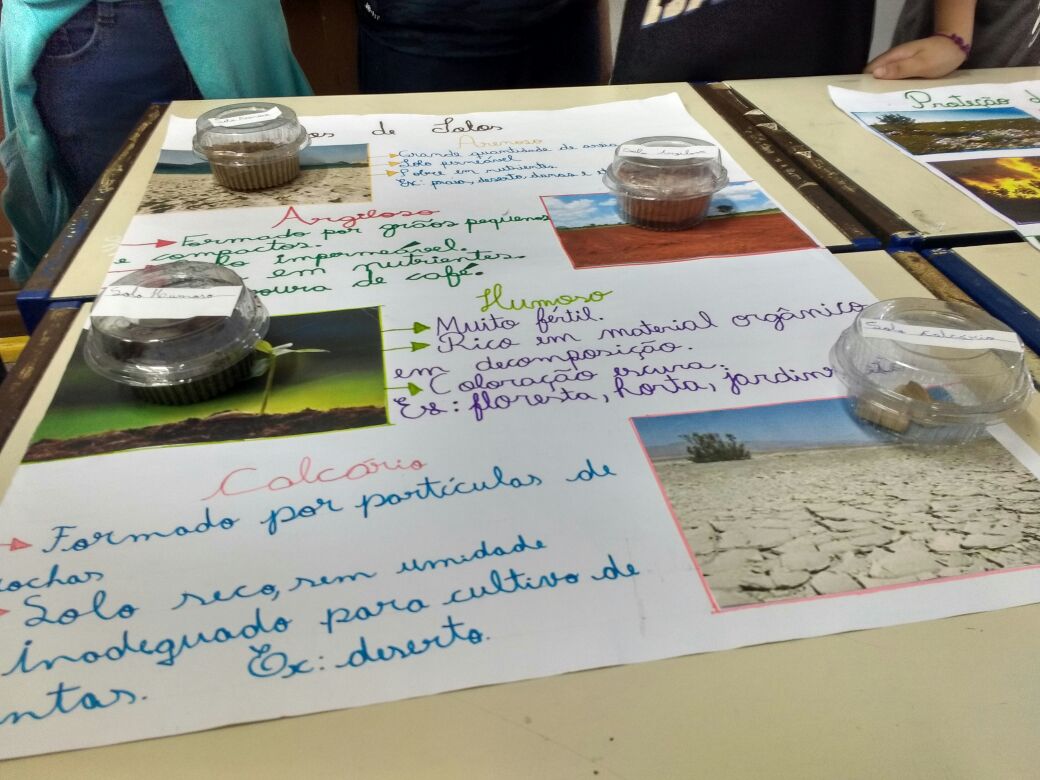 Solo Arenoso
de Solos
Arenoso
Grande quantidade de
Solo permeável
Pobre em nutrientes.
Ex: praia, deserto, dunas e
Solo Argiloso
Argiloso
Formado por grãos pequenos
e compactos.
impermeável.
em nutrientes.
de café.
Solo Humoso
Humoso
Muito fértil.
Rico em material orgânico
em decomposição.
Coloração escura.
Ex: floresta, horta, jardim
Solo Calcário
Calcário
Formado por partículas de
rochas
Solo seco, sem umidade
inadequado para cultivo de
ntas. Ex: deserto.
Proteção d